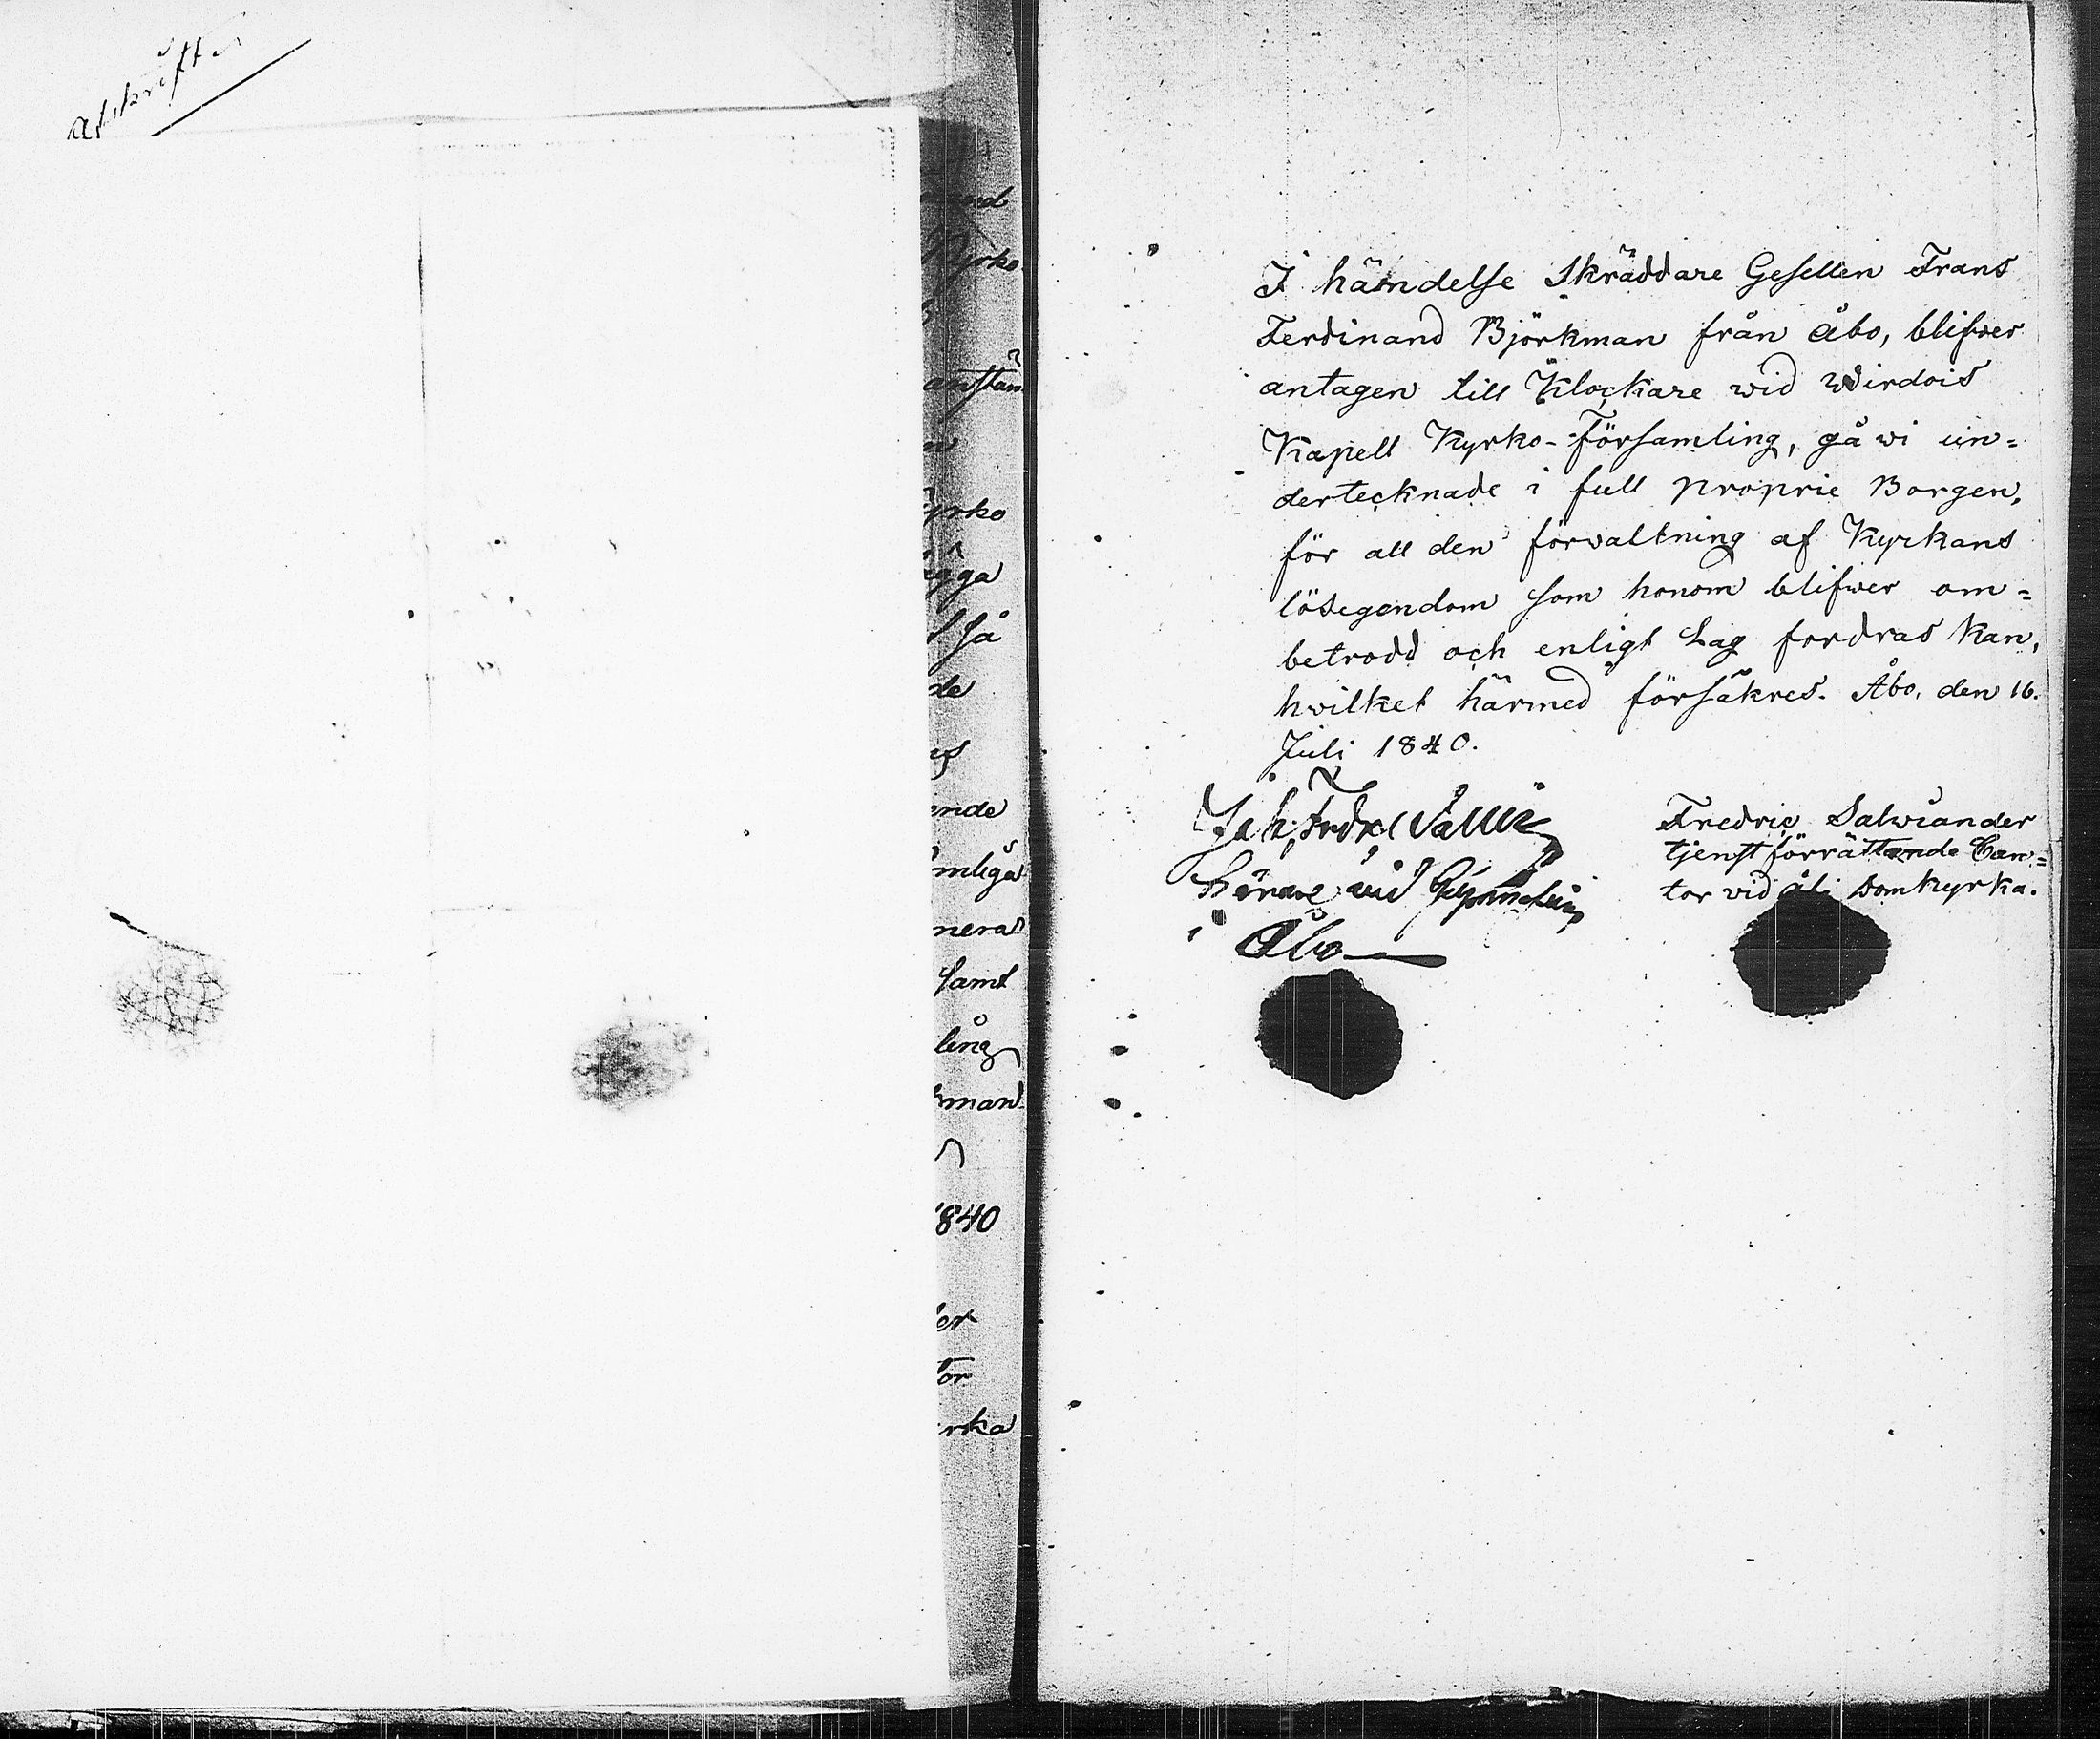 afskrifter
nd
Kyrko
anstän
n
yrko
ägga
så
de
ende
mliga
nera
samt
ling
man
1840
er
tor
rka
I händelse Skräddare Gesellen Frans
Ferdinand Björkman från Åbo, blifver
antagen till Klockare wid Wirdois
Kapell Kyrko-Församling, gå wi un=
dertecknade i full proprie Borgen,
för all den förvaltning af Kyrkans
lösegendom som honom blifwer om=
betrodd och enligt Lag fordras kan,
hwilket härmed försäkres. Åbo, den 16.
Juli 1840.
Joh, Fredr
Lärare vid Gymnasium
i Åbo
Fredric Salwiander
tjenstförrättande Can=
tor vid Domkyrka.